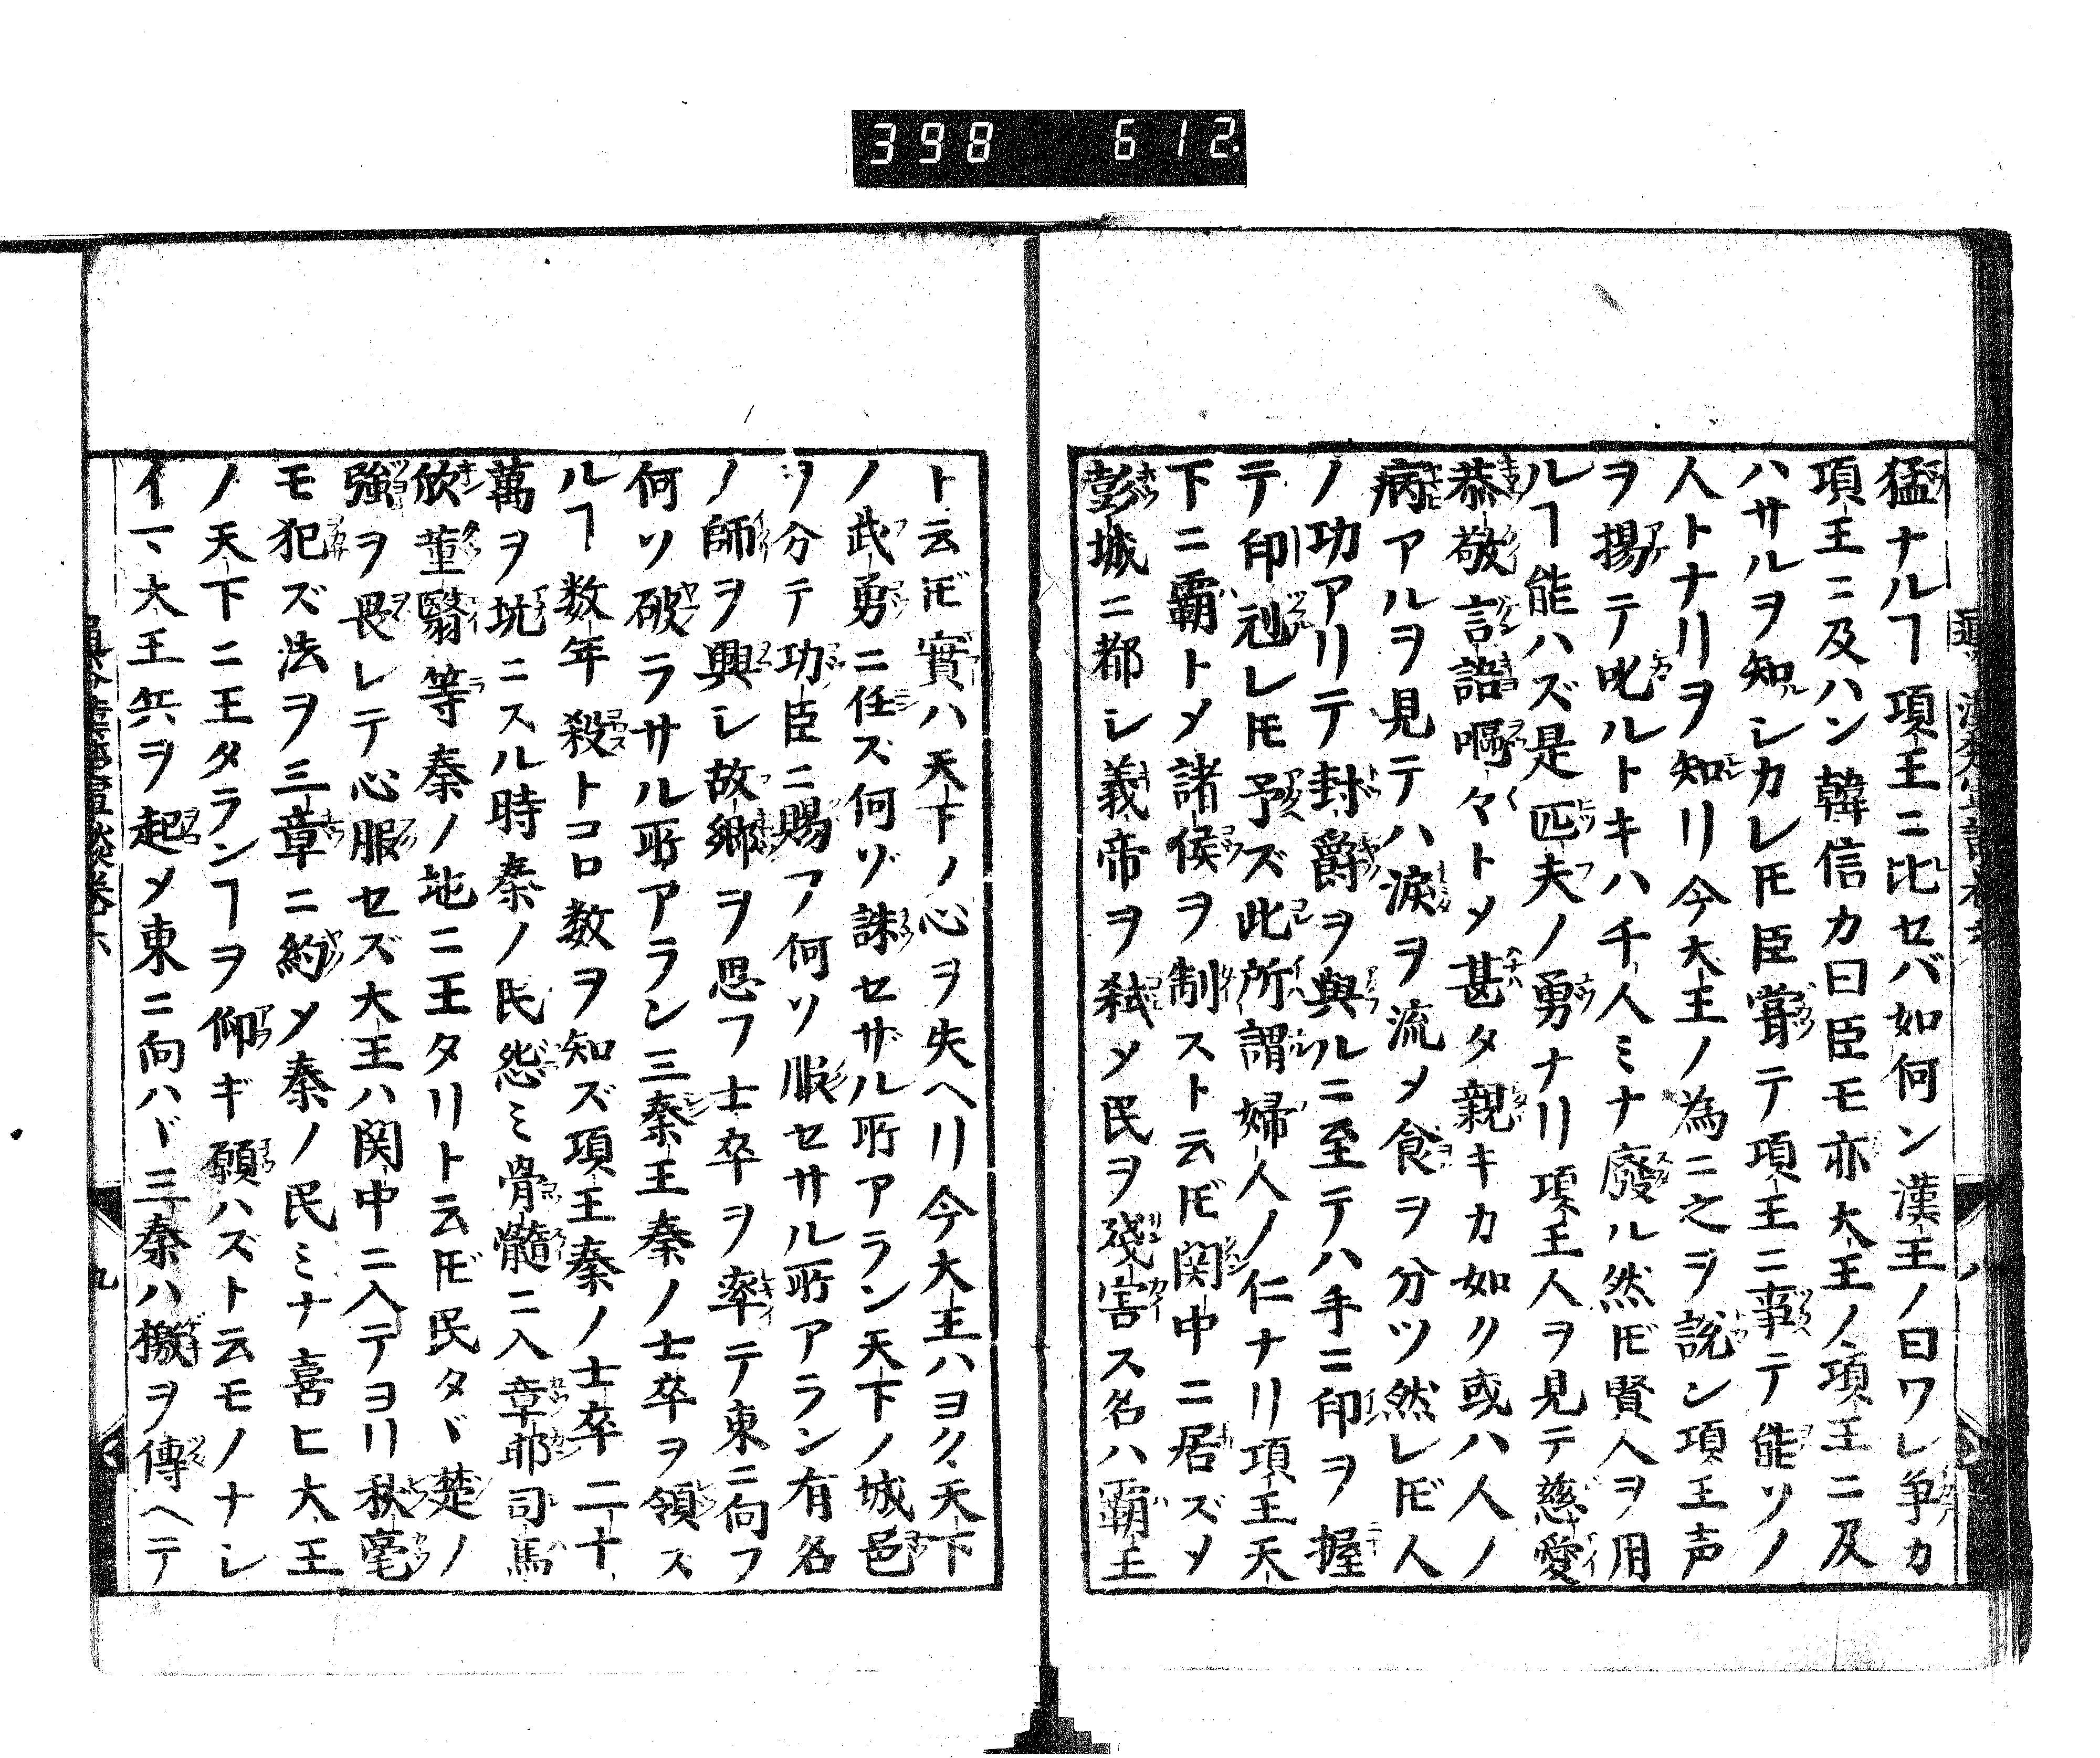 398 612.
猛ナルヿ項王ニ比セバ如何ン漢王ノ曰ワレ争カ
項王ニ及ハン韓信カ曰臣モ亦大王ノ項王ニ及
ハサルヲ知シカレ𪜈臣嘗テ項王ニ事テ能ソノ
人トナリヲ知リ今大王ノ為ニ之ヲ説ン項王声
ヲ揚テ叱ルトキハ千人ミナ廢ル然𪜈賢人ヲ用
ルヿ能ハズ是匹夫ノ勇ナリ項王人ヲ見テ慈愛
恭敬言語嘔々トメ甚タ親キカ如ク或ハ人ノ
病アルヲ見テハ涙ヲ流メ食ヲ分ツ然レ𪜈人
ノ功アリテ封爵ヲ與ルニ至テハ手ニ印ヲ握
テ印刓レ𪜈予ズ此所謂婦人ノ仁ナリ項王天
下ニ覇トメ諸侯ヲ制スト云𪜈関中ニ居ズメ
彭城ニ都レ義帝ヲ弑メ民ヲ残害ス名ハ覇王
ト云𪜈實ハ天下ノ心ヲ失ヘリ今大王ハヨク天下
ノ武勇ニ任ス何ゾ誅セザル所アラン天下ノ城邑
ヲ分テ功臣ニ賜フ何ソ服セサル所アラン有名
ノ師ヲ興レ故郷ヲ思フ士卒ヲ率テ東ニ向フ
何ソ破ラサル所アラン三秦王秦ノ士卒ヲ領ス
ルヿ数年殺トコロ数ヲ知ズ項王秦ノ士卒二十
萬ヲ坑ニスル時秦ノ民怨ミ骨髄ニ入章邯司馬
欣董翳等秦ノ地ニ王タリト云𪜈民タヾ楚ノ
強ヲ畏レテ心服セズ大王ハ関中ニ入テヨリ秋毫
モ犯ズ法ヲ三章ニ約メ秦ノ民ミナ喜ヒ大王
ノ天下ニ王タランヿヲ仰ギ願ハズト云モノナシ
イマ大王兵ヲ起メ東ニ向ハヾ三秦ハ檄ヲ傳ヘテ
九